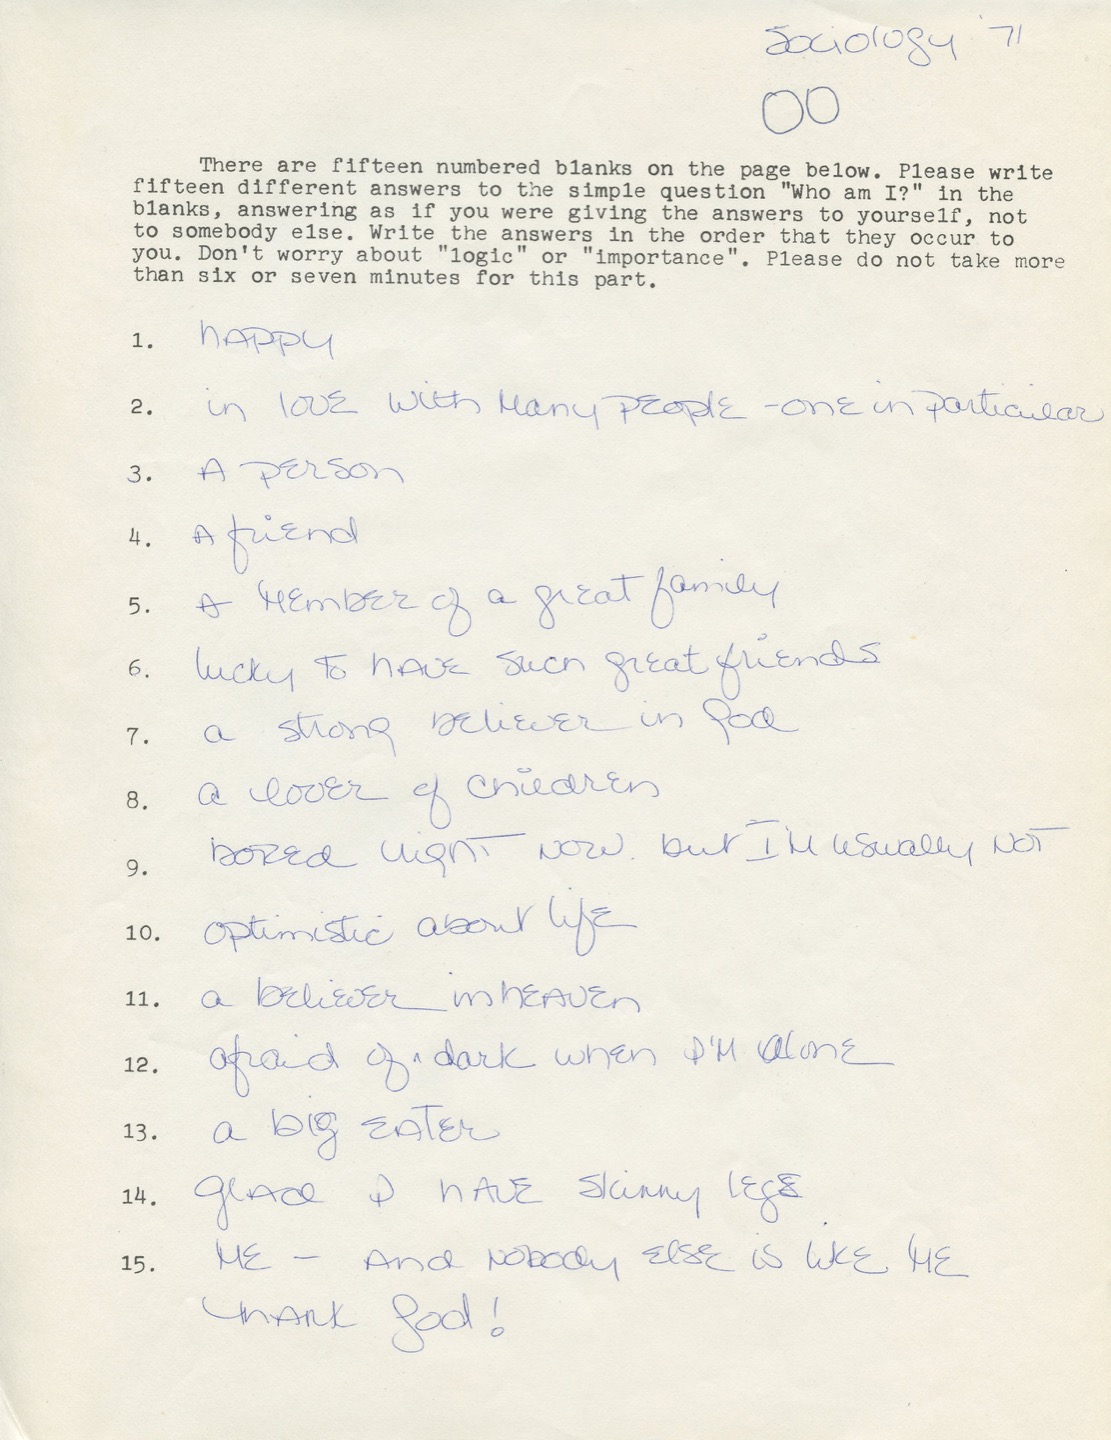 Sociology '71
00
There are fifteen numbered blanks on the page below. Please write
fifteen different answers to the simple question "Who am I?" in the
blanks, answering as if you were giving the answers to yourself, not
to somebody else. Write the answers in the order that they occur to
you. Don't worry about "logic" or "importance". Please do not take more
than six or seven minutes for this part.
1. hAPPy
2. in love with Many people - one in particular
3. A person
4. A friend
5. A MEMBER of a great family
6. lucky To hAVE such great friends
7. a strong believer in God
8. a lover of children
9. bored right NOW. but I'M usually NOT
10. optimistic about life
11. a believer in hEAVEn
12. afraid of dark when I'M alone
13. a big EATer
14. glAd I hAVE skinny legs
15. ME - And Nobody ELSE is like ME
thANk God!